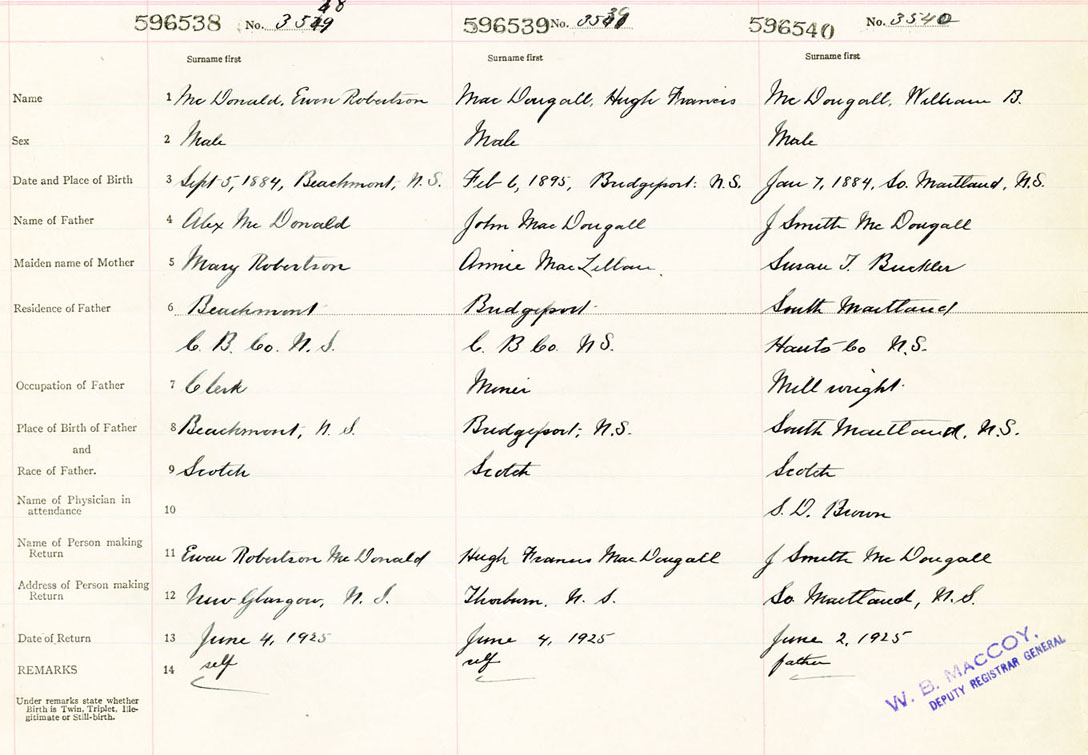 596538 No. 3549 48
596539 No. 3541 39
596540 No. 3540
Surname first Surname first Surname first
Name 1 Mc Donald, Ewen Robertson Mac Dougall, Hugh Francis Mc Dougall, William B.
Sex 2 Male Male Male
Date and Place of Birth 3 Sept 5, 1884, Beachmont, N.S. Feb 6, 1895, Bridgeport, N.S. Jan 7, 1884, So. Maitland, N.S.
Name of Father 4 Alex Mc Donald John Mac Dougall J Smith Mc Dougall
Maiden name of Mother 5 Mary Robertson Annie MacLellan. Susan T. Buckler
Residence of Father 6 Beachmont Bridgeport South Maitland
C. B. Co. N. S. C. B Co. N S. Hants Co N.S.
Occupation of Father 7 Clerk Miner Mill wright
Place of Birth of Father 8 Beachmont, N. S. Bridgeport, N.S. South Maitland, N.S.
and
Race of Father. 9 Scotch Scotch Scotch
Name of Physician in
attendance 10 S. D. Brown
Name of Person making
Return 11 Ewen Robertson Mc Donald Hugh Francis Mac Dougall J Smith Mc Dougall
Address of Person making
Return 12 New Glasgow, N. S. Thorburn, N. S. So Maitland, N.S.
Date of Return 13 June 4, 1925 June 4, 1925 June 2, 1925
REMARKS 14 self self father
Under remarks state whether
Birth is Twin, Triplet, Ille-
gitimate or Still-birth.
W. B. MACCOY,
DEPUTY REGISTRAR GENERAL